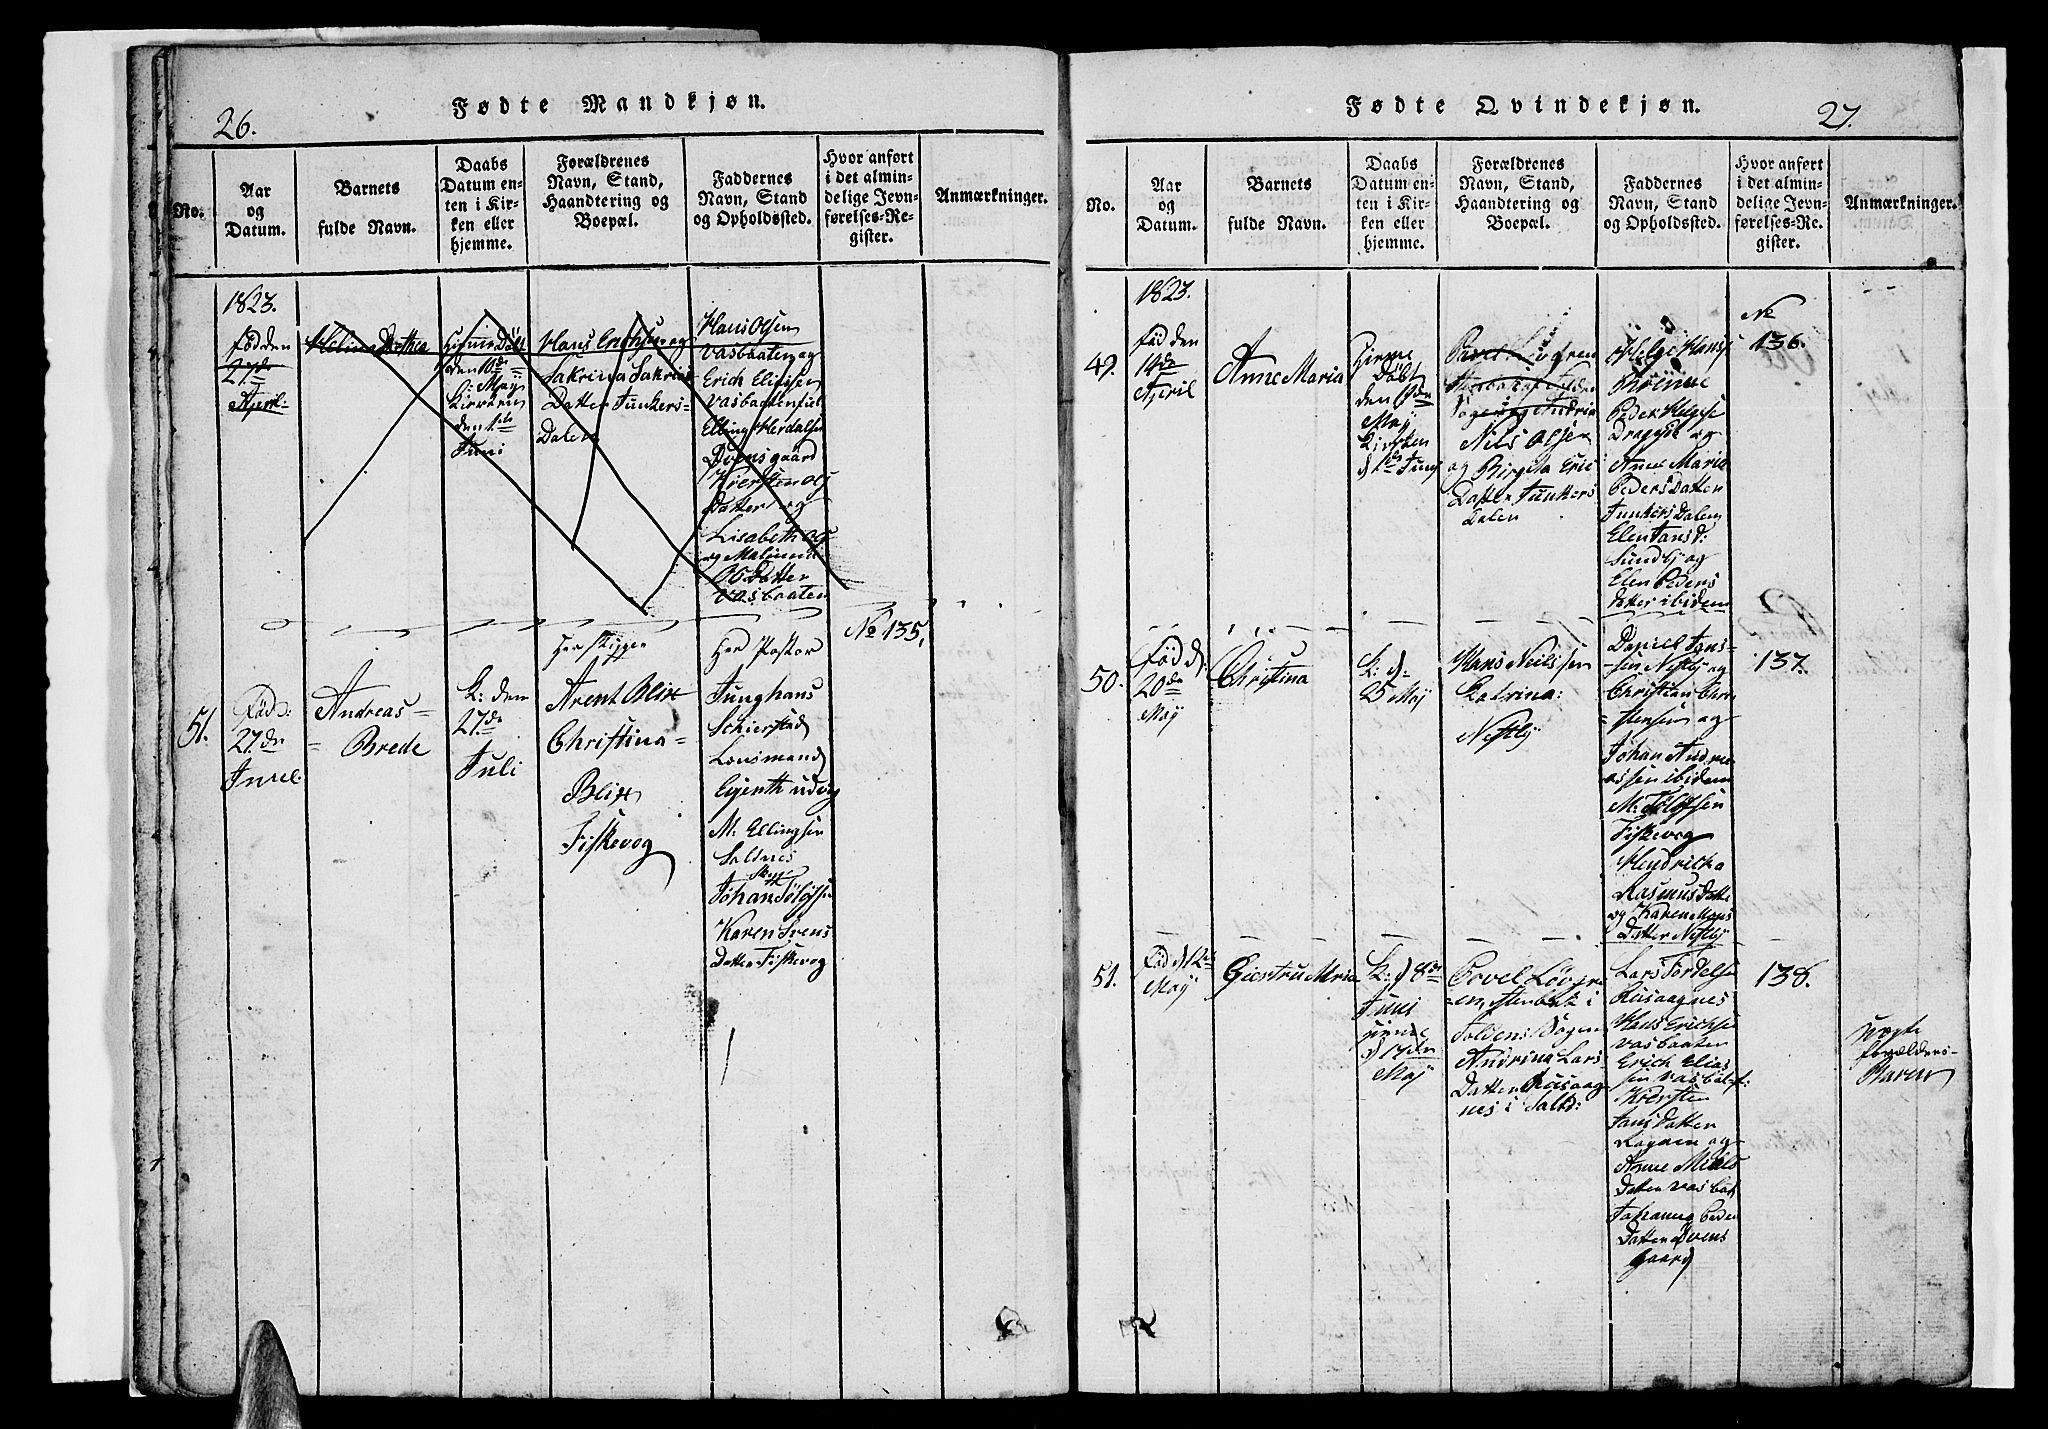 26.
Fødte Mandkjøn.
No.
Aar
og
Datum.
Barnets
fulde Navn.
Daabs
Datum en-
ten i Kir-
ken eller
hjemme.
Forældrenes
Navn, Stand,
Haandtering og
Boepæl.
Faddernes
Navn, Stand
og Opholdssted.
Hvor anført
i det almin-
delige Jevn-
førelses-Re-
gister.
Anmærkninger.
1823.
Fød den
27de
April
Dothea
Hjeme Döbt
den 10de
Maij
Kirken
den 1ste
Juni
Hans Erichsen og
Sakrina Sakrias
Datter Junkers-
Dalen
Hans Olsen
Vasbaaten og
Erich Eliassen
Vasbaaten
Elling Herdalsen
Evensgaard
Kiersten Ols
Datter og
Lisabeth
og
Ols Datter
Vasbaaten
51.
Fød:
27de
Andreas
Brede
K: den
27de
Juli
Her Skipper
Arent Blix
Christina
Blix
Fiskevog
Her Pastor
Junghans
Schierstad
Lensmand
Egenth udvig
M. Ellingsen
Saltnes
Skipp:
Johan Tölöfsen
Karen Svens
Datter Fiskevog
No 135,
27.
Fødte Qvindekjøn.
No.
Aar
og
Datum.
Barnets
fulde Navn.
Daabs
Datum en-
ten i Kir-
ken eller
hjemme.
Forældrenes
Navn, Stand,
Haandtering og
Boepæl.
Faddernes
Navn, Stand
og Opholdssted.
Hvor anført
i det almin-
delige Jevn-
førelses-Re-
gister.
Anmærkninger.
1823.
49.
Fød den
14de
April
Anne Maria
Hjeme
Döbt
den
Maij
Kirken
d 1de Junij
Nils Olsen
og Birgita Eric
Datter Junkers
Dalen
Helge Hans
Peder Helgese
og
Anne Maria
Peders Datter
Junkers Dalen
Elen Jans d:
Sundby og
Elen Peders
datter ibidem
No
136.
50.
Fød d:
20de
Maij
Christina
K: d
25 Maij
Hans Neilssen
Katrina:
Nestby
Daniel Jens-
sen Nestby og
Christian Chri
stensen og
Johan Andre
assen ibidem
M: Tölöfsen
Fiskevog
Hendrikka
Rasmus datter
og Karen Mons
Datter Nestby
137.
51.
Fød d 12de
Maij
Gjertru Maria
K: d 8de
Juni
hjeme
d 17den
Maij
Povel Løvgre
en, Husbeb: i
Foldens Sogen
Andrina Lars
Datter Rusaag
nes i Saltd:
Lars Tordelse
Rusaagnes
Hans Erichse
Vasbaaten
Erich Elias
sen Vasbot:
Kiersten
Jans datter
Rognen og
Anne Niels
Datter Vasbot
Johanna Peder
Datter Evens
Gaard
138.
Uægte
forælders
Baren